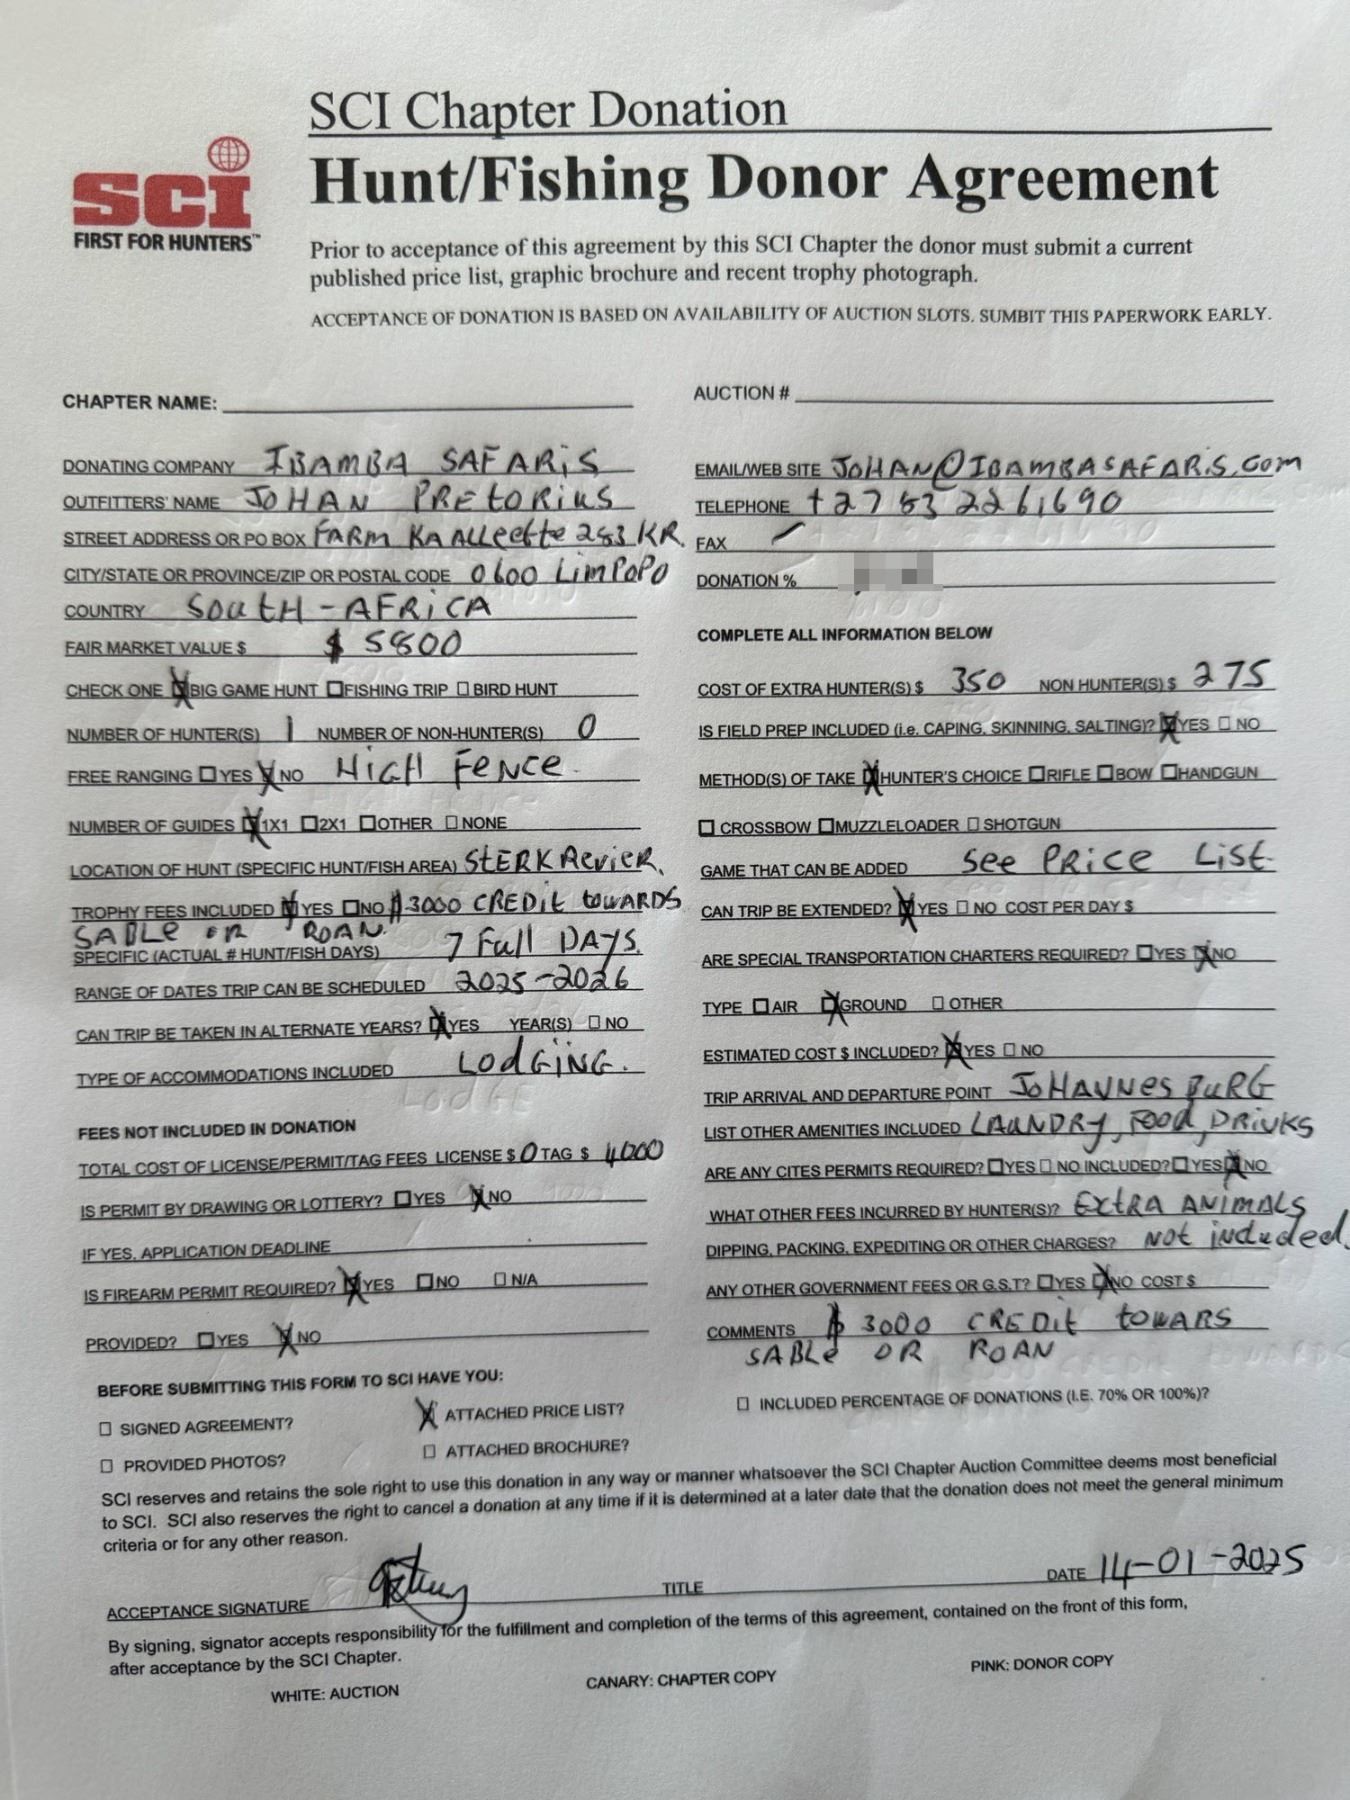 SCI Chapter Donation
SCI
FIRST FOR HUNTERS™
Hunt/Fishing Donor Agreement
Prior to acceptance of this agreement by this SCI Chapter the donor must submit a current
published price list, graphic brochure and recent trophy photograph.
ACCEPTANCE OF DONATION IS BASED ON AVAILABILITY OF AUCTION SLOTS. SUMBIT THIS PAPERWORK EARLY.
CHAPTER NAME:
DONATING COMPANY IBAMBA SAFARIS
OUTFITTERS' NAME JOHAN PRETORIUS
STREET ADDRESS OR PO BOX FARM KAALLEEFTE 283 KR.
CITY/STATE OR PROVINCE/ZIP OR POSTAL CODE 0600 LIMPOPO
COUNTRY SOUTH-AFRICA
FAIR MARKET VALUE $ $ 5800
CHECK ONE BIG GAME HUNT FISHING TRIP BIRD HUNT
NUMBER OF HUNTER(S) 1 NUMBER OF NON-HUNTER(S) 0
FREE RANGING YES NO HIGH FENCE
NUMBER OF GUIDES 1X1 2X1 OTHER NONE
LOCATION OF HUNT (SPECIFIC HUNT/FISH AREA) STERKREVIER.
TROPHY FEES INCLUDED YES NO $3000 CREDIT TOWARDS
SABLE OR ROAN.
SPECIFIC (ACTUAL # HUNT/FISH DAYS) 7 Full DAYS.
RANGE OF DATES TRIP CAN BE SCHEDULED 2025-2026
CAN TRIP BE TAKEN IN ALTERNATE YEARS? YES YEAR(S) NO
TYPE OF ACCOMMODATIONS INCLUDED LODGING.
FEES NOT INCLUDED IN DONATION
TOTAL COST OF LICENSE/PERMIT/TAG FEES LICENSE $ 0 TAG $ 4000
IS PERMIT BY DRAWING OR LOTTERY? YES NO
IF YES, APPLICATION DEADLINE
IS FIREARM PERMIT REQUIRED? YES NO N/A
PROVIDED? YES NO
AUCTION #
EMAIL/WEB SITE JOHAN@IBAMBASAFARIS.COM
TELEPHONE
FAX
DONATION %
COMPLETE ALL INFORMATION BELOW
COST OF EXTRA HUNTER(S) $ 350 NON HUNTER(S) $ 275
IS FIELD PREP INCLUDED (i.e. CAPING, SKINNING, SALTING)? YES NO
METHOD(S) OF TAKE HUNTER'S CHOICE RIFLE BOW HANDGUN
CROSSBOW MUZZLELOADER SHOTGUN
GAME THAT CAN BE ADDED See PRICE LIST
CAN TRIP BE EXTENDED? YES NO COST PER DAY $
ARE SPECIAL TRANSPORTATION CHARTERS REQUIRED? YES NO
TYPE AIR GROUND OTHER
ESTIMATED COST $ INCLUDED? YES NO
TRIP ARRIVAL AND DEPARTURE POINT JOHANNESBURG
LIST OTHER AMENITIES INCLUDED LAUNDRY, FOOD, DRINKS
ARE ANY CITES PERMITS REQUIRED? YES NO INCLUDED? YES NO
WHAT OTHER FEES INCURRED BY HUNTER(S)? EXTRA ANIMALS
DIPPING, PACKING, EXPEDITING OR OTHER CHARGES? NOT included.
ANY OTHER GOVERNMENT FEES OR G.S.T? YES NO COST $
COMMENTS $ 3000 CREDIT TOWARS
SABLE OR ROAN
BEFORE SUBMITTING THIS FORM TO SCI HAVE YOU:
SIGNED AGREEMENT? ATTACHED PRICE LIST? INCLUDED PERCENTAGE OF DONATIONS (I.E. 70% OR 100%)?
PROVIDED PHOTOS? ATTACHED BROCHURE?
SCI reserves and retains the sole right to use this donation in any way or manner whatsoever the SCI Chapter Auction Committee deems most beneficial
to SCI. SCI also reserves the right to cancel a donation at any time if it is determined at a later date that the donation does not meet the general minimum
criteria or for any other reason.
ACCEPTANCE SIGNATURE TITLE DATE 14-01-2025
By signing, signator accepts responsibility for the fulfillment and completion of the terms of this agreement, contained on the front of this form,
after acceptance by the SCI Chapter.
WHITE: AUCTION CANARY: CHAPTER COPY PINK: DONOR COPY